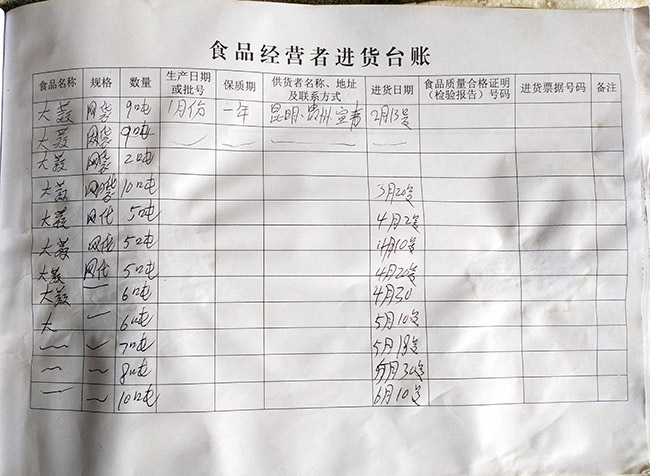 食品经营者进货台账
食品名称 规格 数量 生产日期或批号 保质期 供货者名称、地址及联系方式 进货日期 食品质量合格证明（检验报告）号码 进货票据号码 备注
大蒜 网袋 9吨 1月份 一年 昆明、贵州、宜春 2月13号
大蒜 网袋 9吨
大蒜 网袋 2吨
大蒜 网袋 10吨 3月20号
大蒜 网袋 5吨 4月2号
大蒜 网袋 5吨 4月10号
大蒜 网袋 5吨 4月20号
大蒜 6吨 4月30
大 6吨 5月10号
7吨 5月18号
8吨 5月30号
10吨 6月10号